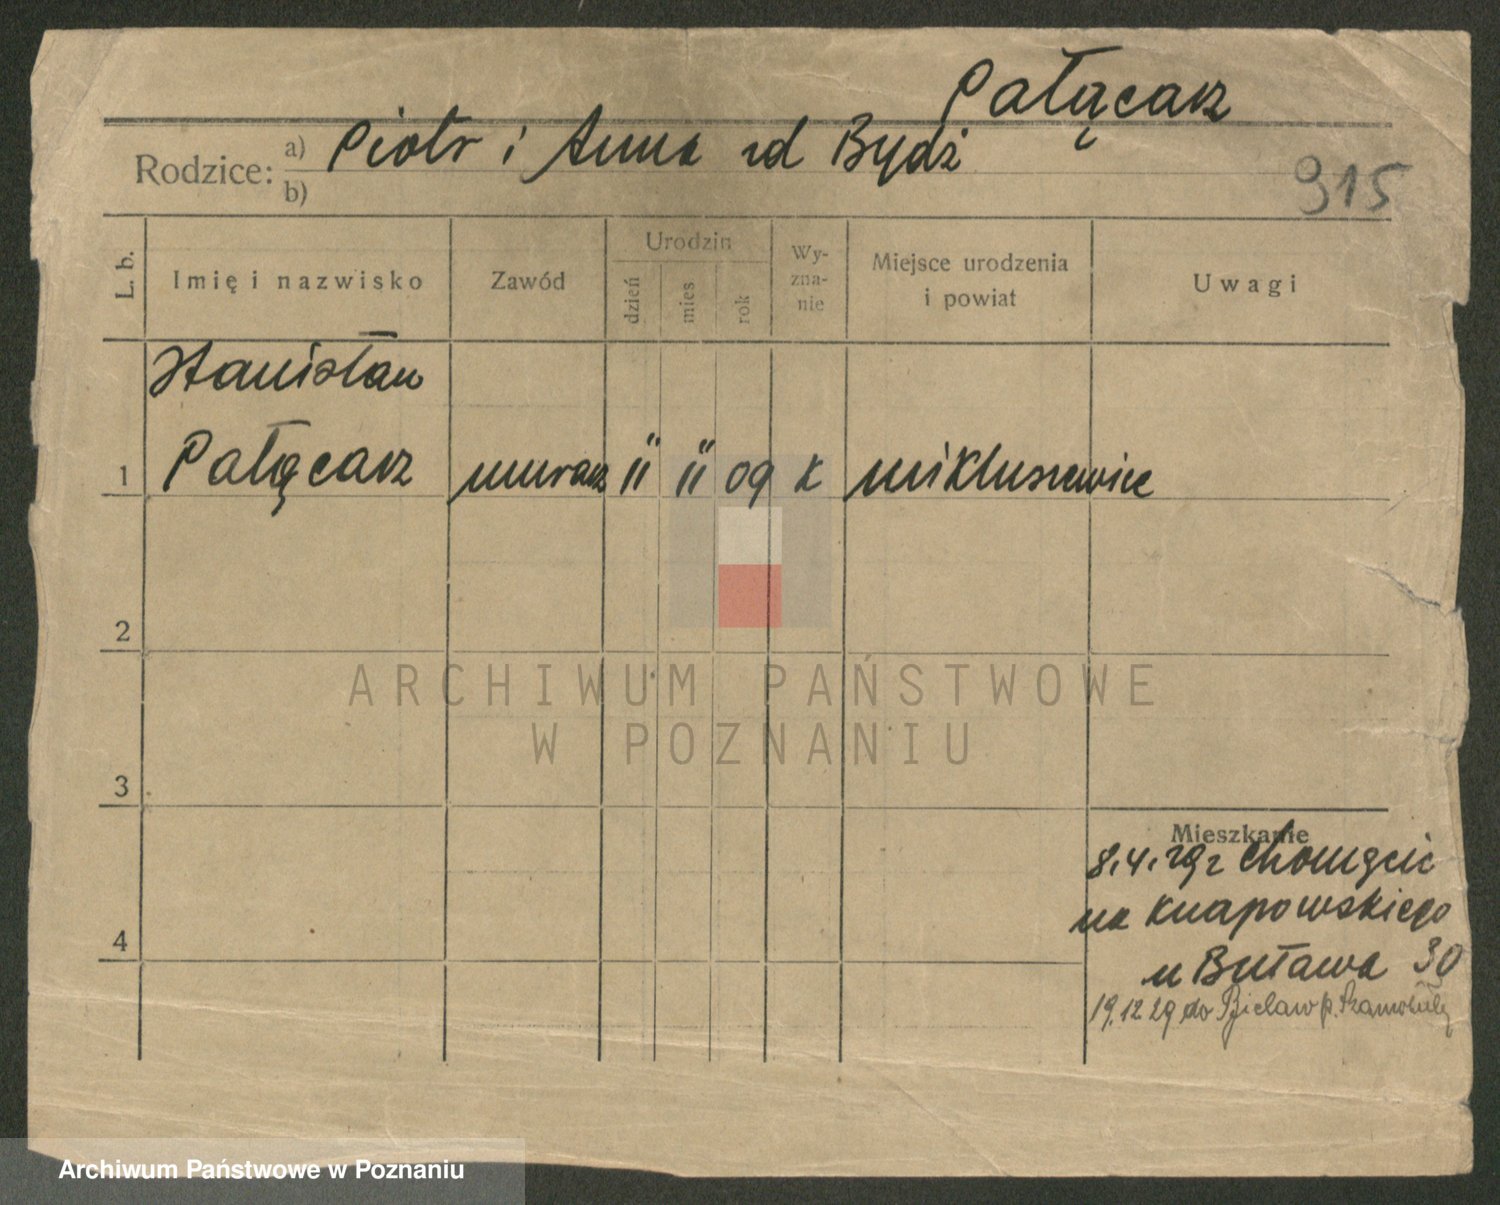 Pałącarz
Rodzice: a) Piotr i Anna zd Bydź
b)
915
L. b.
Imię i nazwisko
Zawód
Urodzin
dzień
mies
rok
Wy-
zna-
nie
Miejsce urodzenia
i powiat
Uwagi
Stanisław
1 Pałącarz murarz 11 11 09 k Mikluszewice
2
3
4
Mieszkanie
8.4.29 z
na Knapowskiego
u Buława 30
19.12.29 do p. Szamotuły
ARCHIWUM PAŃSTWOWE
W POZNANIU
Archiwum Państwowe w Poznaniu